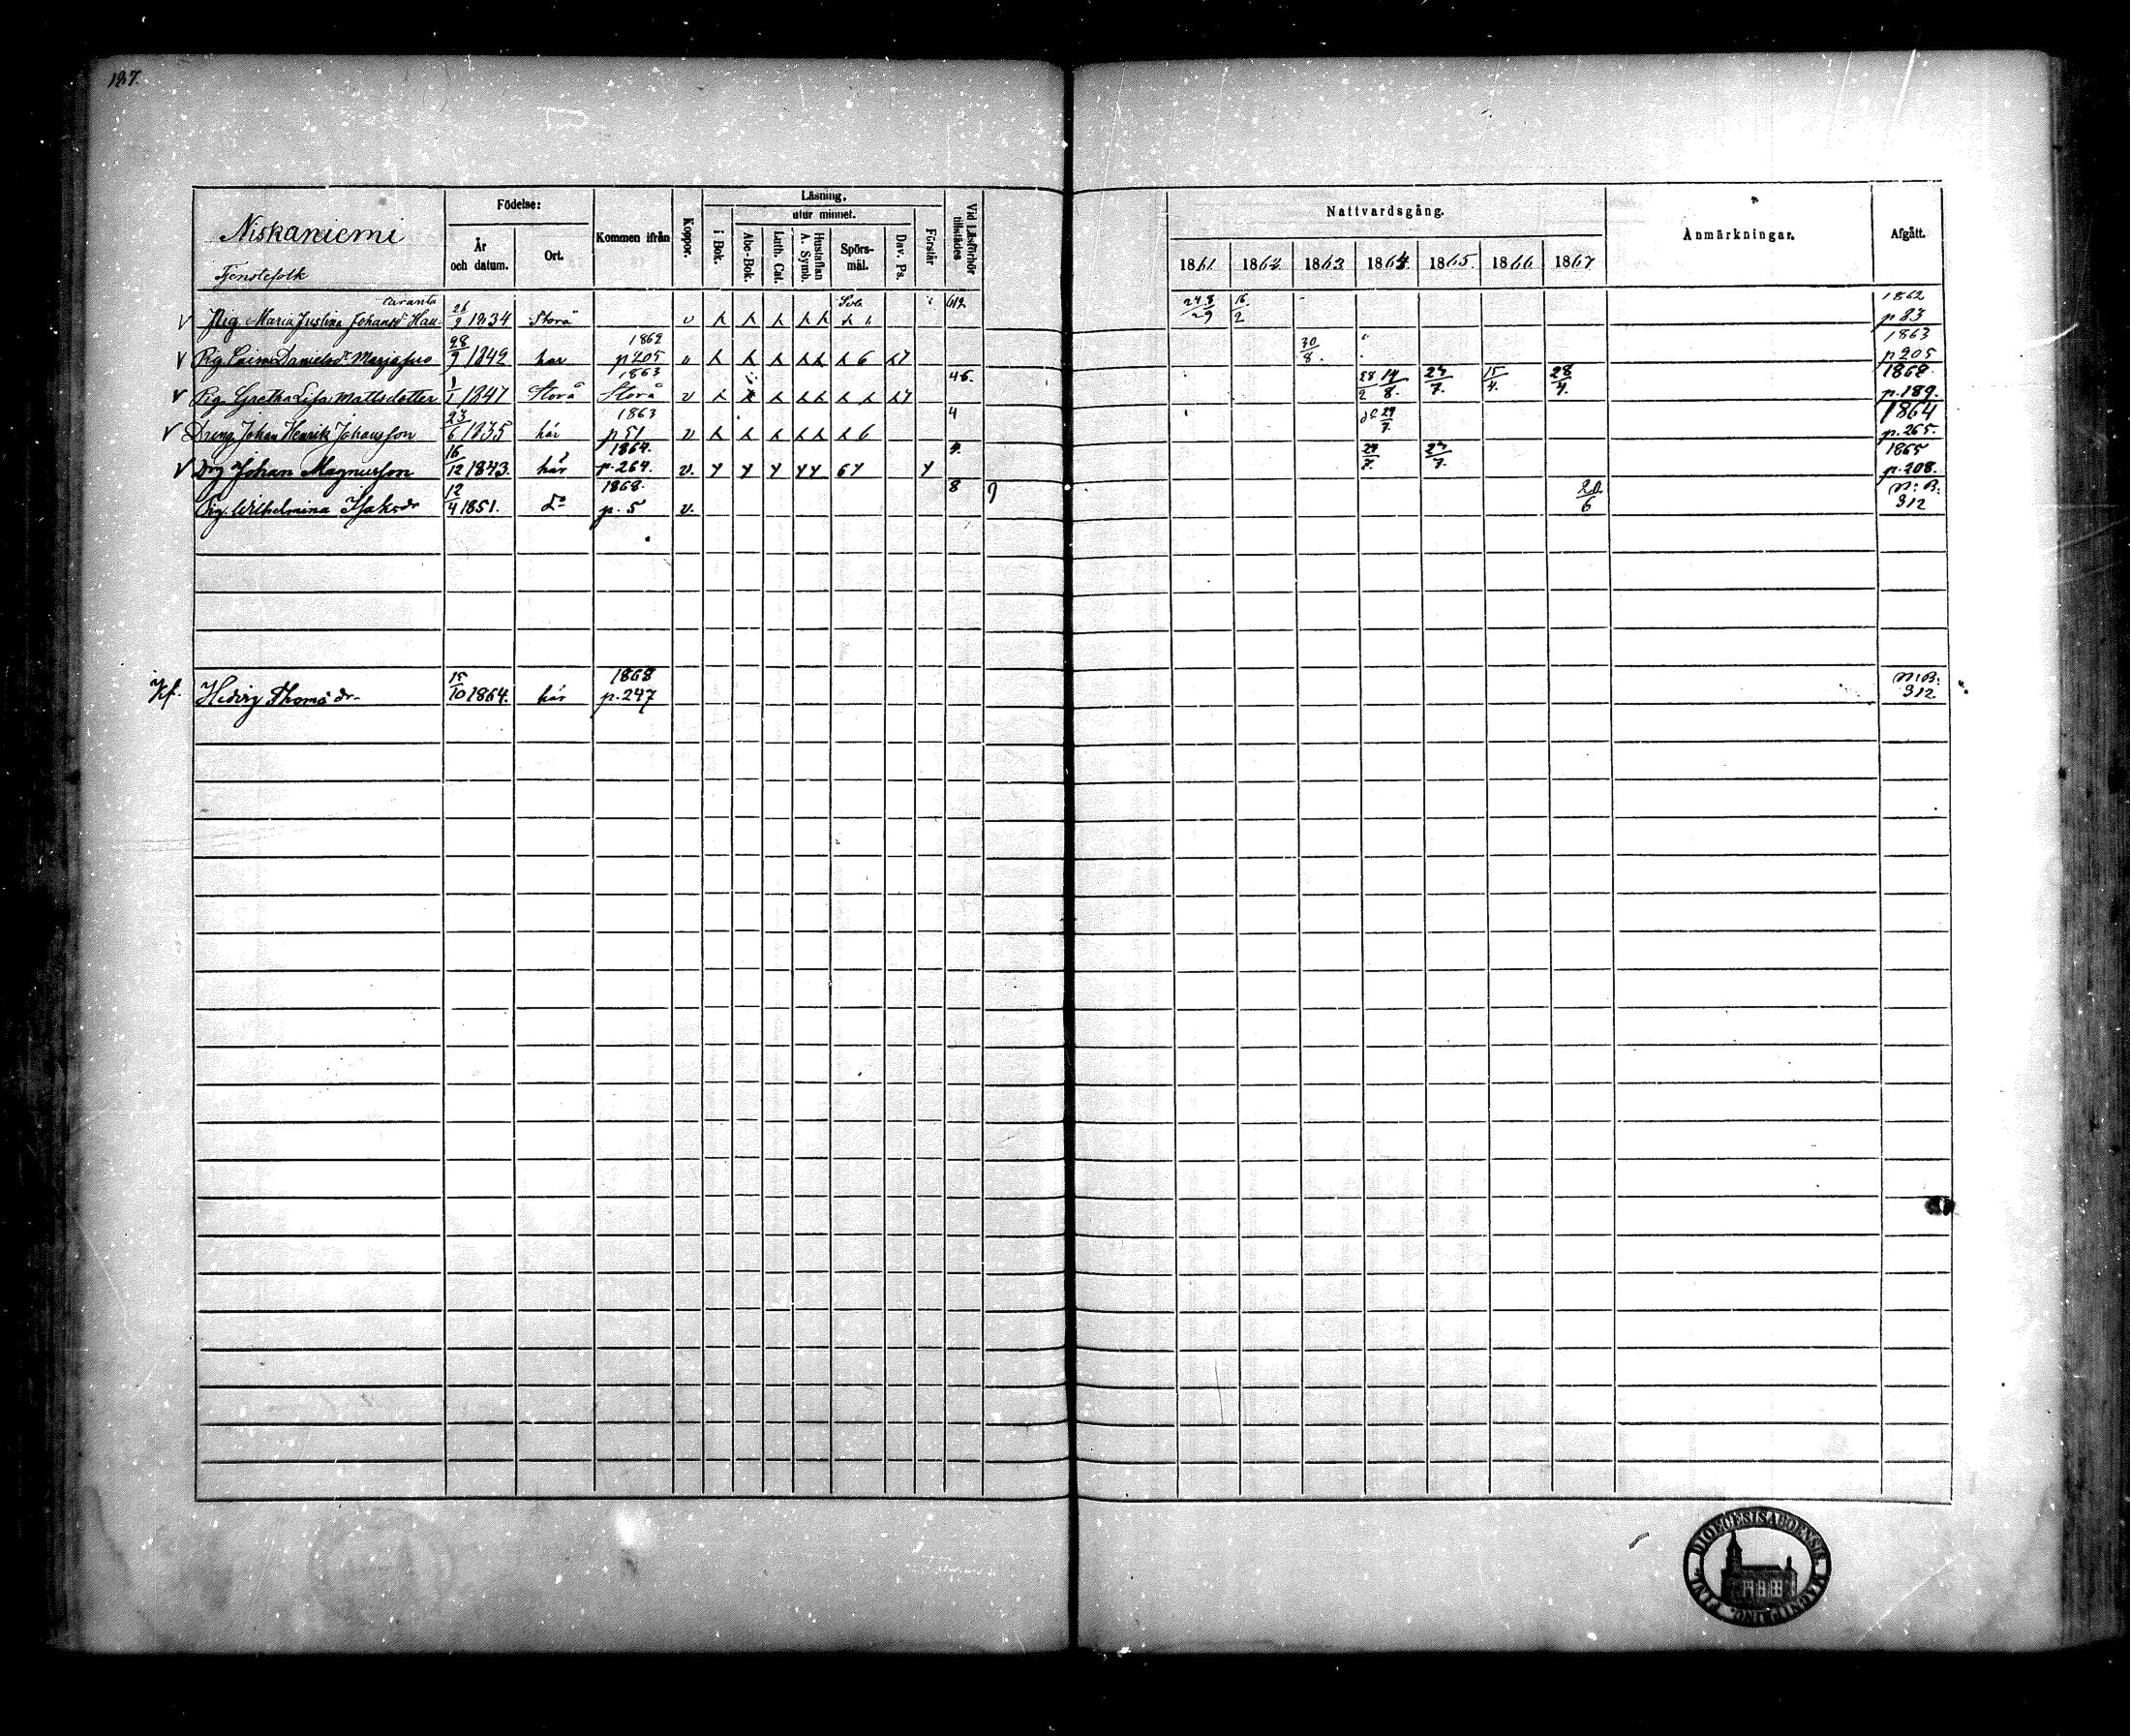 187.
Niskaniemi
Tjenstefolk
Födelse:
År och datum.
Ort.
Kommen ifrån
Koppor.
Läsning.
i Bok.
utur minnet.
Abc-Bok.
Luth. Cat.
Hustaflan A. Symb.
Spörs-mål.
Dav. Ps.
Förstår
Vid Läsförhör tillstädes
Nattvardsgång.
1861 1862 1863 1864 1865. 1866 1867
Anmärkningar.
Afgått.
Pig Maria Justina Johansd 26/9 1834 Storå v 612 16/2 1862 p 83
Pig Danielsdr 28/9 1842 här 1862 p 205 v 30/8. 1863 p 205
Pig. Gretha Lisa Mattsdotter 1/1 1847 Storå 1863 Storå v 45. 28/2 14/8. 23/7. 15/4. 28/4. 1868 p. 189.
Dreng Johan Henrik Johansson 23/6 1835 här 1863 p 51 v 4 1864 p. 265.
Drg Johan Magnusson 16/12 1843. här 1864. p. 264. v. 1865 p. 208.
Pig. Wilhelmina Isaksdr 12/4 1851. do 1868. p. 5 v. 8 20/6 N: B: 312
Hedvig Thomasdr 15/10 1864. här 1868 p. 247 N: B: 312
DIOECESIS ABOENSIS MAGNI PRINC. FINL.